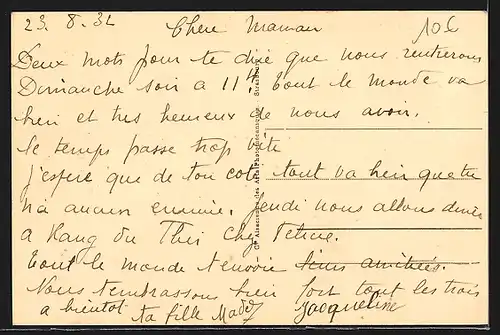 23.8.32 Chere Maman 10c
Deux mots pour te dire que nous rentrerons
Dimanche soir a 11h tout le monde va
bien et tres heureux de nous avoir.
le temps passe trop vite
j'espere que de ton coté tout va bien que tu
n'a aucun ennuie. jeudi nous allons diner
a du chez
tout le monde t'envoie amitiées.
Nous t'embrassons bien fort tout les trois
a bientot. ta fille Mad Jacqueline